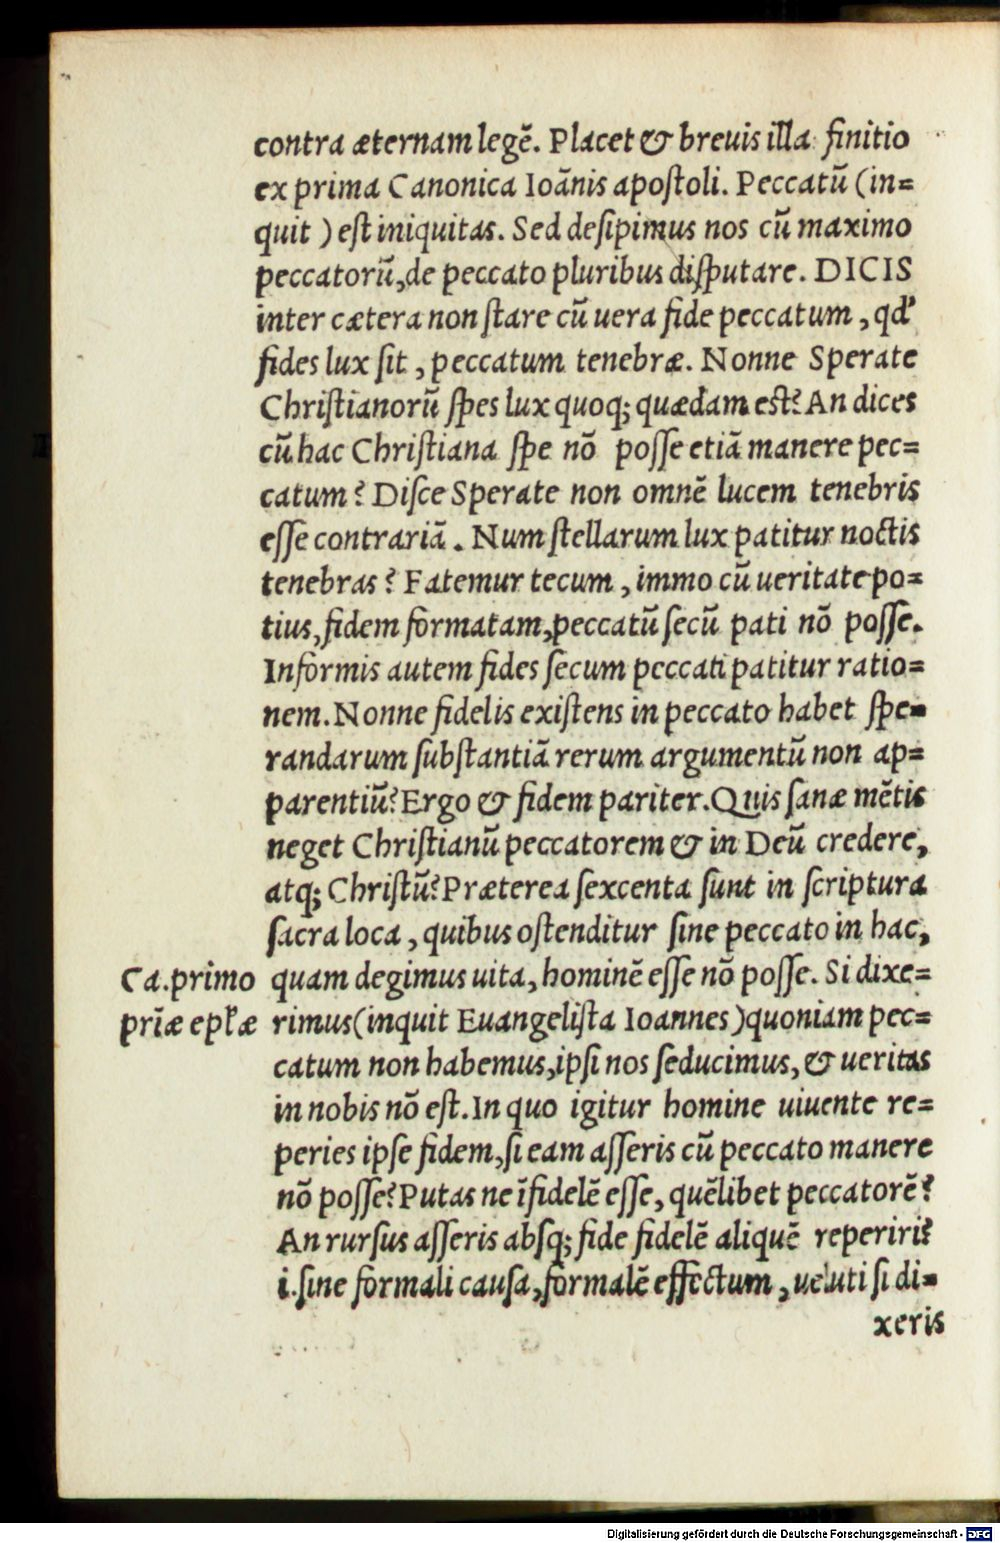 contra æternam legē. Placet & breuis illa finitio
ex prima Canonica Ioānis apoſtoli. Peccatū (in=
quit ) eſt iniquitas. Sed deſipimus nos cū maximo
peccatorū, de peccato pluribus diſputare. DICIS
inter cætera non ſtare cū uera fide peccatum, qd'
fides lux ſit, peccatum tenebræ. Nonne Sperate
Chriſtianorū ſpes lux quoq; quædam eſt? An dices
cū hac Chriſtiana ſpe nō poſſe etiā manere pec=
catum? Diſce Sperate non omnē lucem tenebris
eſſe contrariā. Num ſtellarum lux patitur noctis
tenebras? Fatemur tecum, immo cū ueritate po=
tius, fidem formatam, peccatū ſecū pati nō poſſe.
Informis autem fides ſecum peccati patitur ratio=
nem. Nonne fidelis exiſtens in peccato habet ſpe=
randarum ſubſtantiā rerum argumentū non ap=
parentiū? Ergo & fidem pariter. Quis ſanæ mētis
neget Chriſtianū peccatorem & in Deū credere,
atq; Chriſtū? Præterea ſexcenta ſunt in ſcriptura
ſacra loca, quibus oſtenditur ſine peccato in hac,
Ca. primo quam degimus uita, hominē eſſe nō poſſe. Si dixe=
prīæ epľæ rimus (inquit Euangeliſta Ioannes) quoniam pec=
catum non habemus, ipſi nos ſeducimus, & ueritas
in nobis nō eſt. In quo igitur homine uiuente re=
peries ipſe fidem, ſi eam aſſeris cū peccato manere
nō poſſe? Putas ne īfidelē eſſe, quēlibet peccatorē?
An rurſus aſſeris abſq; fide fidelē aliquē reperiri?
i. ſine formali cauſa, formalē effectum, ueluti ſi di=
xeris
Digitalisierung gefördert durch die Deutsche Forschungsgemeinschaft - DFG